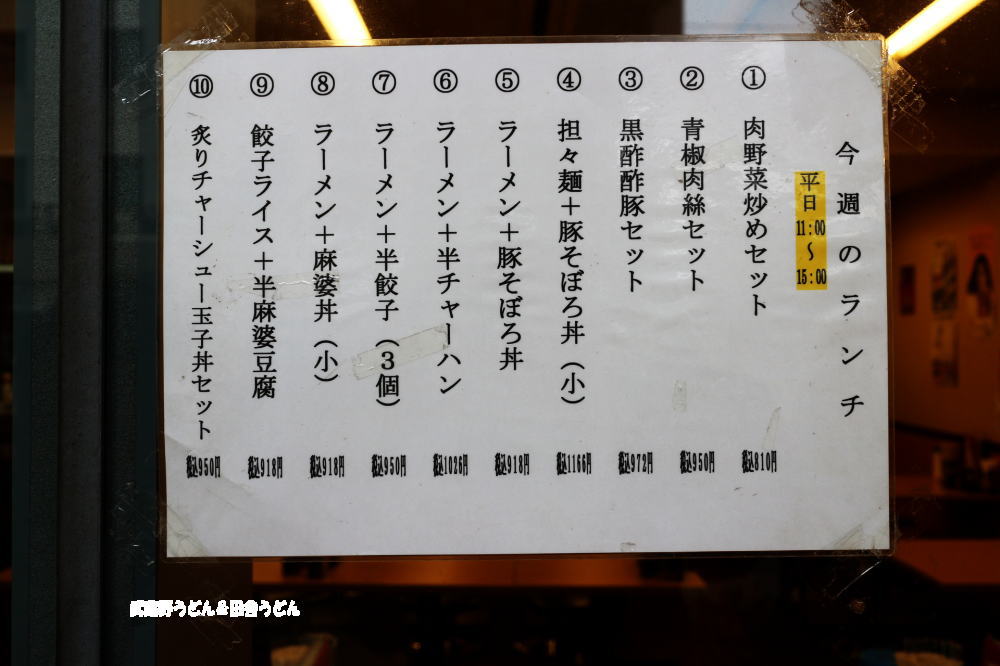 今週のランチ
平日 11:00～15:00
① 肉野菜炒めセット 税込810円
② 青椒肉絲セット 税込950円
③ 黒酢酢豚セット 税込972円
④ 担々麺＋豚そぼろ丼（小） 税込1166円
⑤ ラーメン＋豚そぼろ丼 税込918円
⑥ ラーメン＋半チャーハン 税込1026円
⑦ ラーメン＋半餃子（3個） 税込950円
⑧ ラーメン＋麻婆丼（小） 税込918円
⑨ 餃子ライス＋半麻婆豆腐 税込918円
⑩ 炙りチャーシュー玉子丼セット 税込950円
武蔵野うどん&田舎うどん